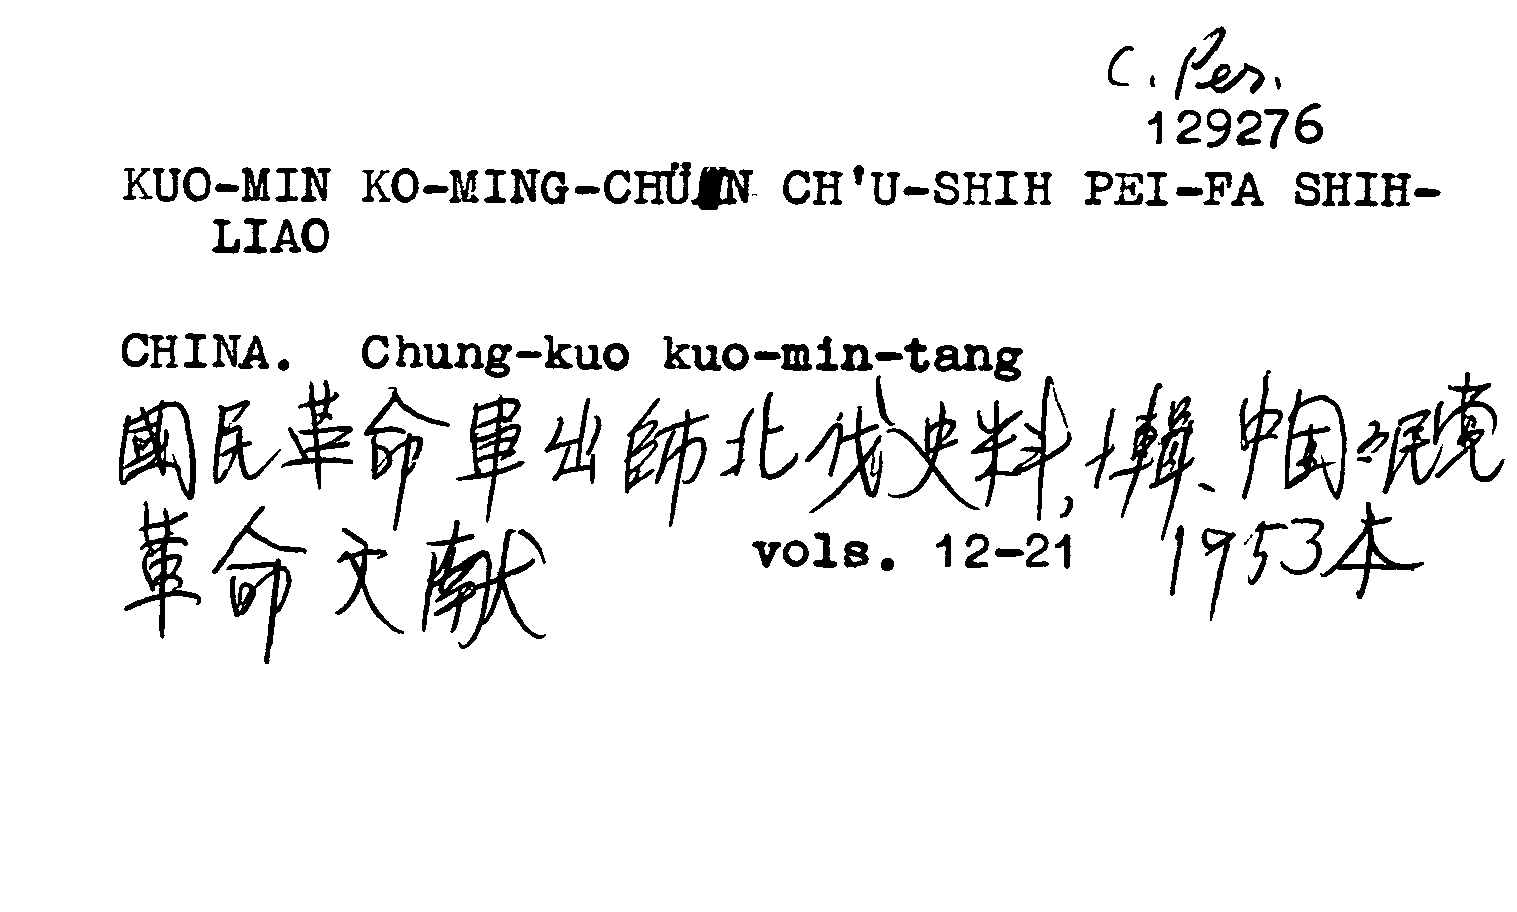 C. Per.
129276
KUO-MIN KO-MING-CHÜN CH'U-SHIH PEI-FA SHIH-
LIAO
CHINA. Chung-kuo kuo-min-tang
國民革命軍出師北伐史料, 十輯、中国国民党
革命文献 vols. 12-21 1953本